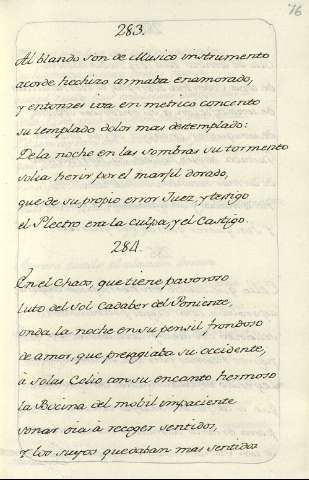 76
283.
Al blando son de Musico instrumento
acorde hechizo armaba enamorado,
y entonzes iva en metrico concento
su templado dolor mas destemplado:
De la noche en las sombras su tormento
solia herir por el marfil dorado,
que de su propio error Juez, y testigo
el Plectro era la Culpa, y el Castigo.
284.
En el Chaos, que tiene pavoroso
luto del Sol Cadaber del Poniente,
onda la noche en su pensil frondoso
de amor, que presagiaba su occidente,
à solas Celio con su encanto hermoso
la Bocina del mobil impaciente
sonar oia à recoger sentidos,
y los suyos quedaban mas sentidos